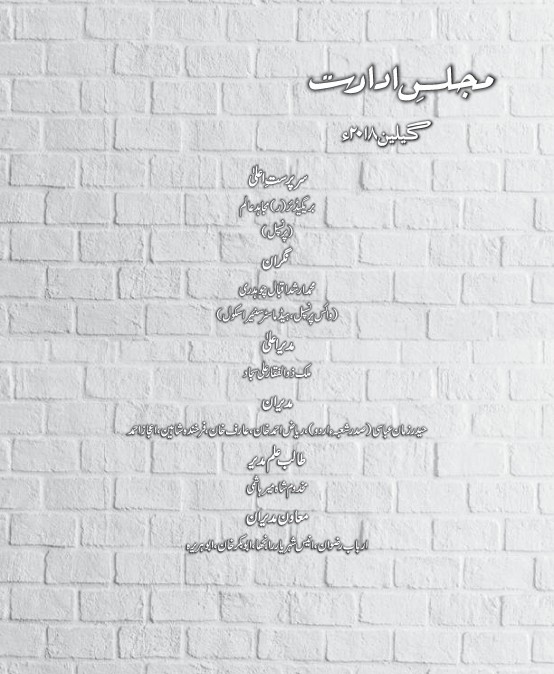 مجلسِ ادارت
گیلین ۲۰۱۸ء
سرپرستِ اعلیٰ
بریگیڈئر (ر) مجاہد عالم
(پرنسپل)
نگران
محمد ارشد اقبال چوہدری
(وائس پرنسپل، ہیڈ ماسٹر سینئر اسکول)
مدیر اعلیٰ
ملک ذوالفقار علی سجاد
مدیران
حیدر زمان عباسی (صدر شعبہ اردو)، ریاض احمد خان، عارف خان، فرخندہ شاہین، اعجاز احمد
طالب علم مدیر
مخدوم شاہ میر ہاشمی
معاون مدیران
ارباب رضوان، انیس شہریار رانجھا، ابوبکر خان، ابوہریرہ